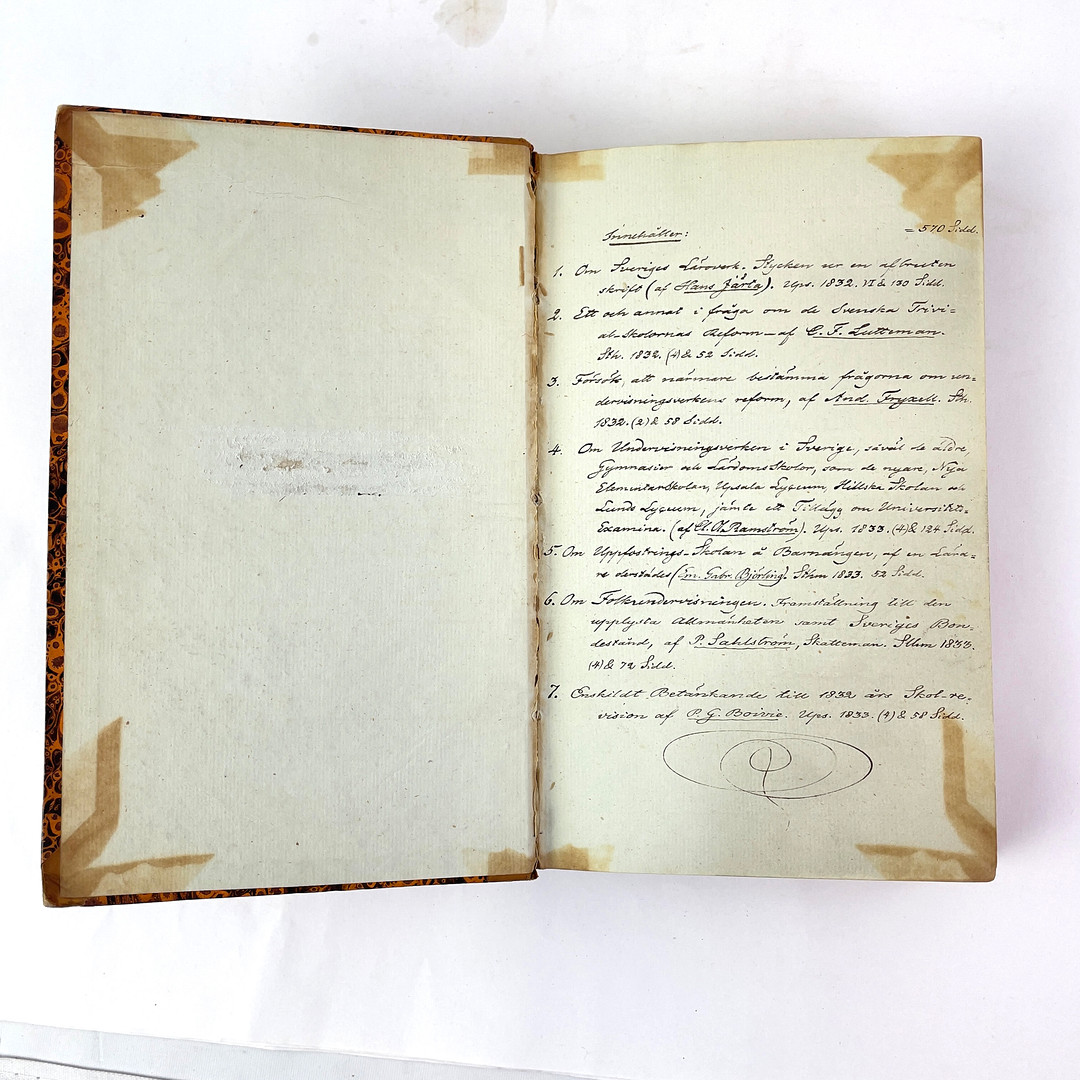 Innehåller:
= 570 Sidd.
1. Om Sveriges Läroverk. Stycken ur en afbruten
skrift (af Hans Järta). Ups. 1832. VI & 130 Sidd.
2. Ett och annat i fråga om de Svenska Trivi=
al-Skolornas Reform – af C. F. Lutteman.
Sth. 1832. (4) & 52 Sidd.
3. Försök, att närmare bestämma frågorna om un=
dervisningsverkens reform, af And. Fryxell. Sth.
1832. (2) & 58 Sidd.
4. Om Undervisningsverken i Sverige, såväl de äldre,
Gymnasier och LärdomsSkolor, som de nyare, Nya
ElementarSkolan, Upsala Lyceum, Hillska Skolan och
Lunds Lyceum, jämte ett Tillägg om Universitets-
Examina. (af Ramström). Ups. 1833. (4) & 124 Sidd.
5. Om Uppfostrings-Skolan å Barnängen, af en Lära=
re derstädes (Em. Gabr. Björling). Sthm 1833. 52 Sidd.
6. Om Folkundervisningen. Framställning till den
upplysta Allmänheten samt Sveriges Bon-
destånd, af P. Sahlström, Skatteman. Sthm 1833.
(4) & 72 Sidd.
7. Enskildt Betänkande till 1832 års Skol-re-
vision af P. G. Boivie. Ups. 1833. (4) & 58 Sidd.